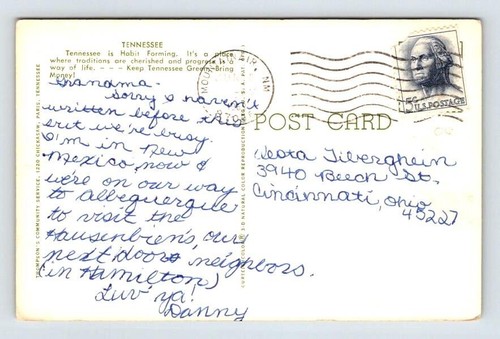 TENNESSEE
Tennessee is Habit Forming. It's a place
where traditions are cherished and progress is a
way of life. — — — Keep Tennessee Green, Bring
Money!
Granama -
Sorry I haven't
written before this
but we're busy.
I'm in New
Mexico, now &
we're on our way
to Albequerque
to visit the
Hausenbien's, our
next door neighbors.
(in Hamilton)
Luv ya!
Danny
POST CARD
Leota Tiberghein
3940 Beech St.
Cincinnati, Ohio
45227
5¢ U.S. POSTAGE
MOUNTAINAIR, NM
THOMPSON'S COMMUNITY SERVICE, 1220 CHICKASAW, PARIS, TENNESSEE
NATURAL COLOR REPRODUCTION